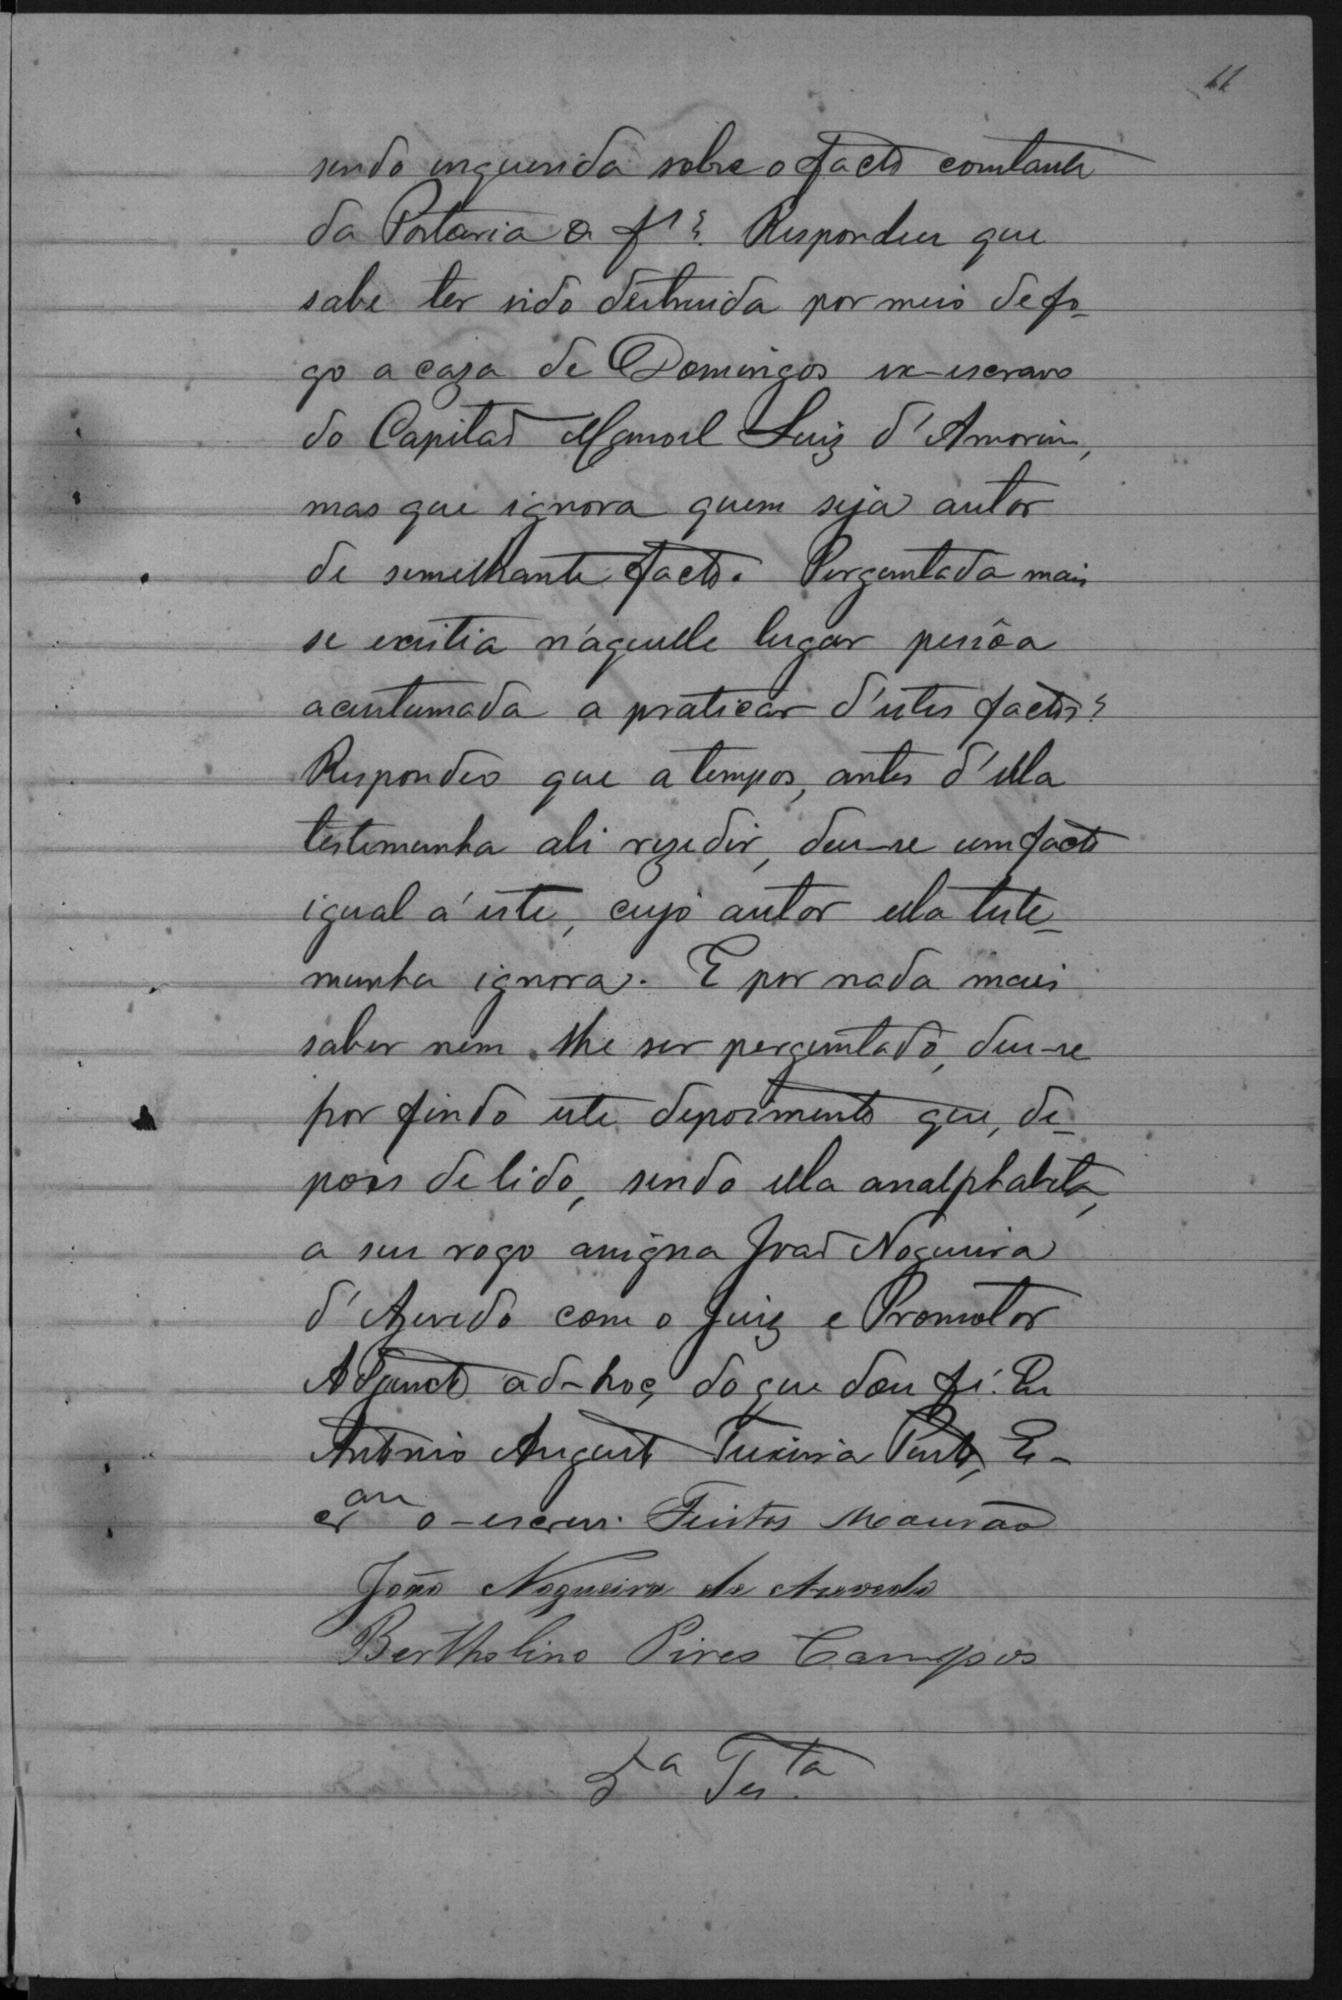 11
sendo inquerida sobre o facto constante
da Portaria a fl ? Respondeu que
sabe ter sido destruida por meio de fo-
go a caza de Domingos ex-escravo
do Capitaõ Manoel Luiz d'Amorim,
mas que ignora quem seja autor
de semelhante facto. Perguntada mais
se existia n'aquelle lugar pessôa
acustumada a praticar d'estes factos?
Respondeo que a tempos, antes d'ella
testemunha ali rezedir, deu-se um facto
igual á este, cujo autor ella teste-
munha ignora. E por nada mais
saber nem lhe ser perguntado, deu-se
por findo este depoimento que, de-
pois de lido, sendo ella analphabeta,
a seu rogo assigna Joaõ Nogueira
d'Azevedo com o Juiz e Promotor
Adjuncto ad-hoc, do que dou fé. Eu
Antonio Augusto Teixeira Pinto, Es-
cr.am o-escrevi. Freitas Mourão
João Nogueira de Azevedo
Bertholino Pires Campos
5a Tes.ta